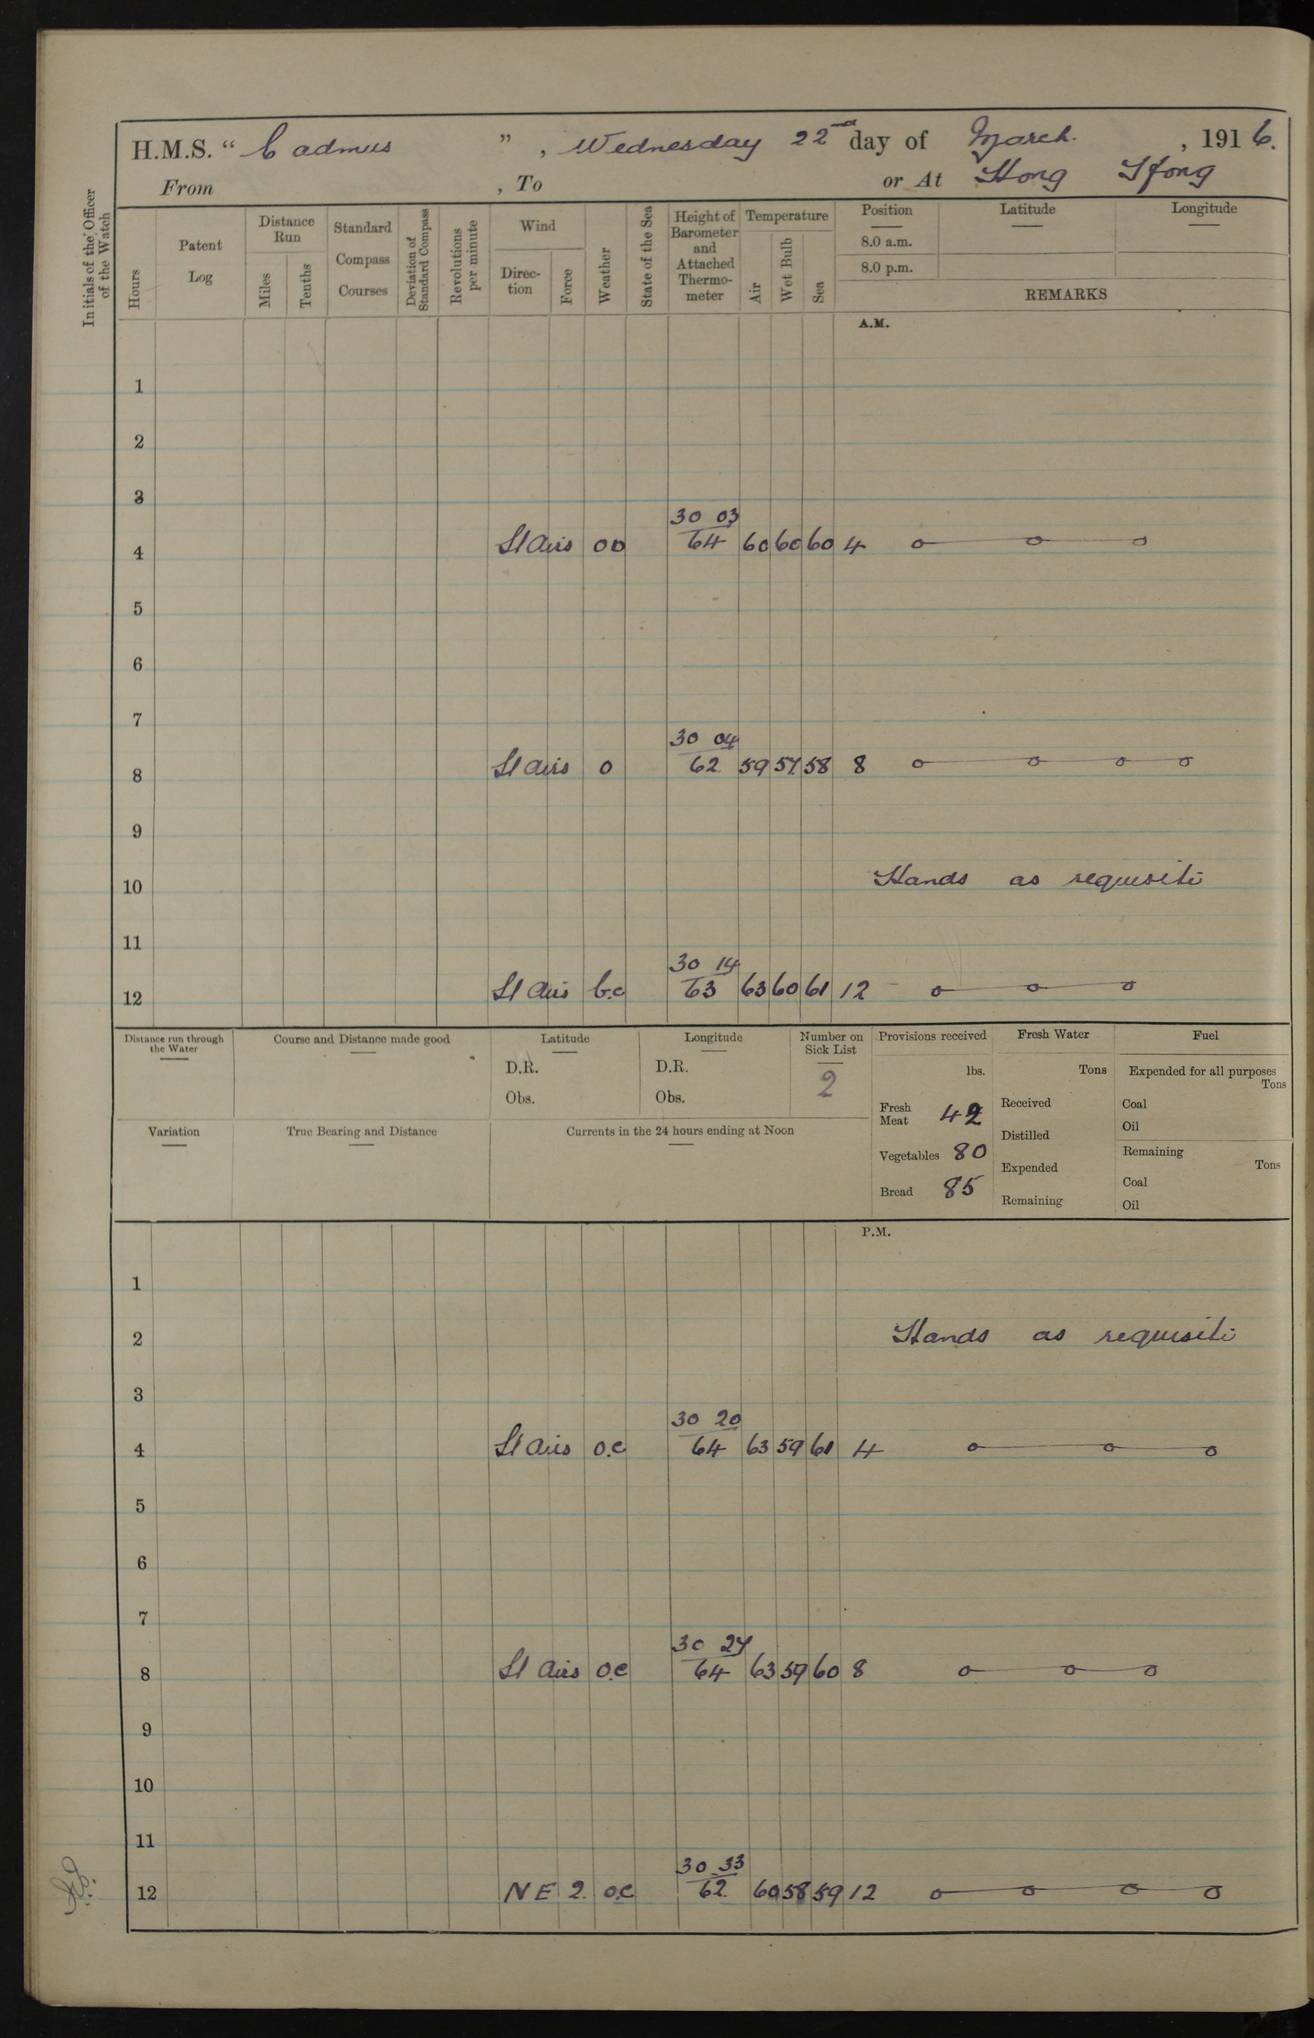 H.M.S. “ Cadmus ” , Wednesday 22nd day of March. , 1916.
From , To or At Hong Kong
Initials of the Officer of the Watch
Hours
Patent Log
Distance Run
Miles
Tenths
Standard Compass Courses
Deviation of Standard Compass
Revolutions per minute
Wind
Direc-tion
Force
Weather
State of the Sea
Height of Barometer and Attached Thermo-meter
Temperature
Air
Wet Bulb
Sea
Position
Latitude
Longitude
8.0 a.m.
8.0 p.m.
REMARKS
A.M.
1
2
3
30 03
4 Lt airs oo 64 60 60 60 4
5
6
7
30 04
8 Lt airs o 62 59 57 58 8
9
10 Hands as requisite
11
30 14
12 Lt airs b.c 63 63 60 61 12
Distance run through the Water
Course and Distance made good
Latitude
D.R.
Obs.
Longitude
D.R.
Obs.
Number on Sick List
2
Variation
True Bearing and Distance
Currents in the 24 hours ending at Noon
Provisions received
lbs.
Fresh Meat 42
Vegetables 80
Bread 85
Fresh Water
Tons
Received
Distilled
Expended
Remaining
Fuel
Expended for all purposes
Tons
Coal
Oil
Remaining
Tons
Coal
Oil
P.M.
1
2 Hands as requisite
3
30 20
4 Lt airs o.c 64 63 59 61 4
5
6
7
30 27
8 Lt airs o.c 64 63 59 60 8
9
10
11
30 33
12 NE 2 o.c 62 60 58 59 12